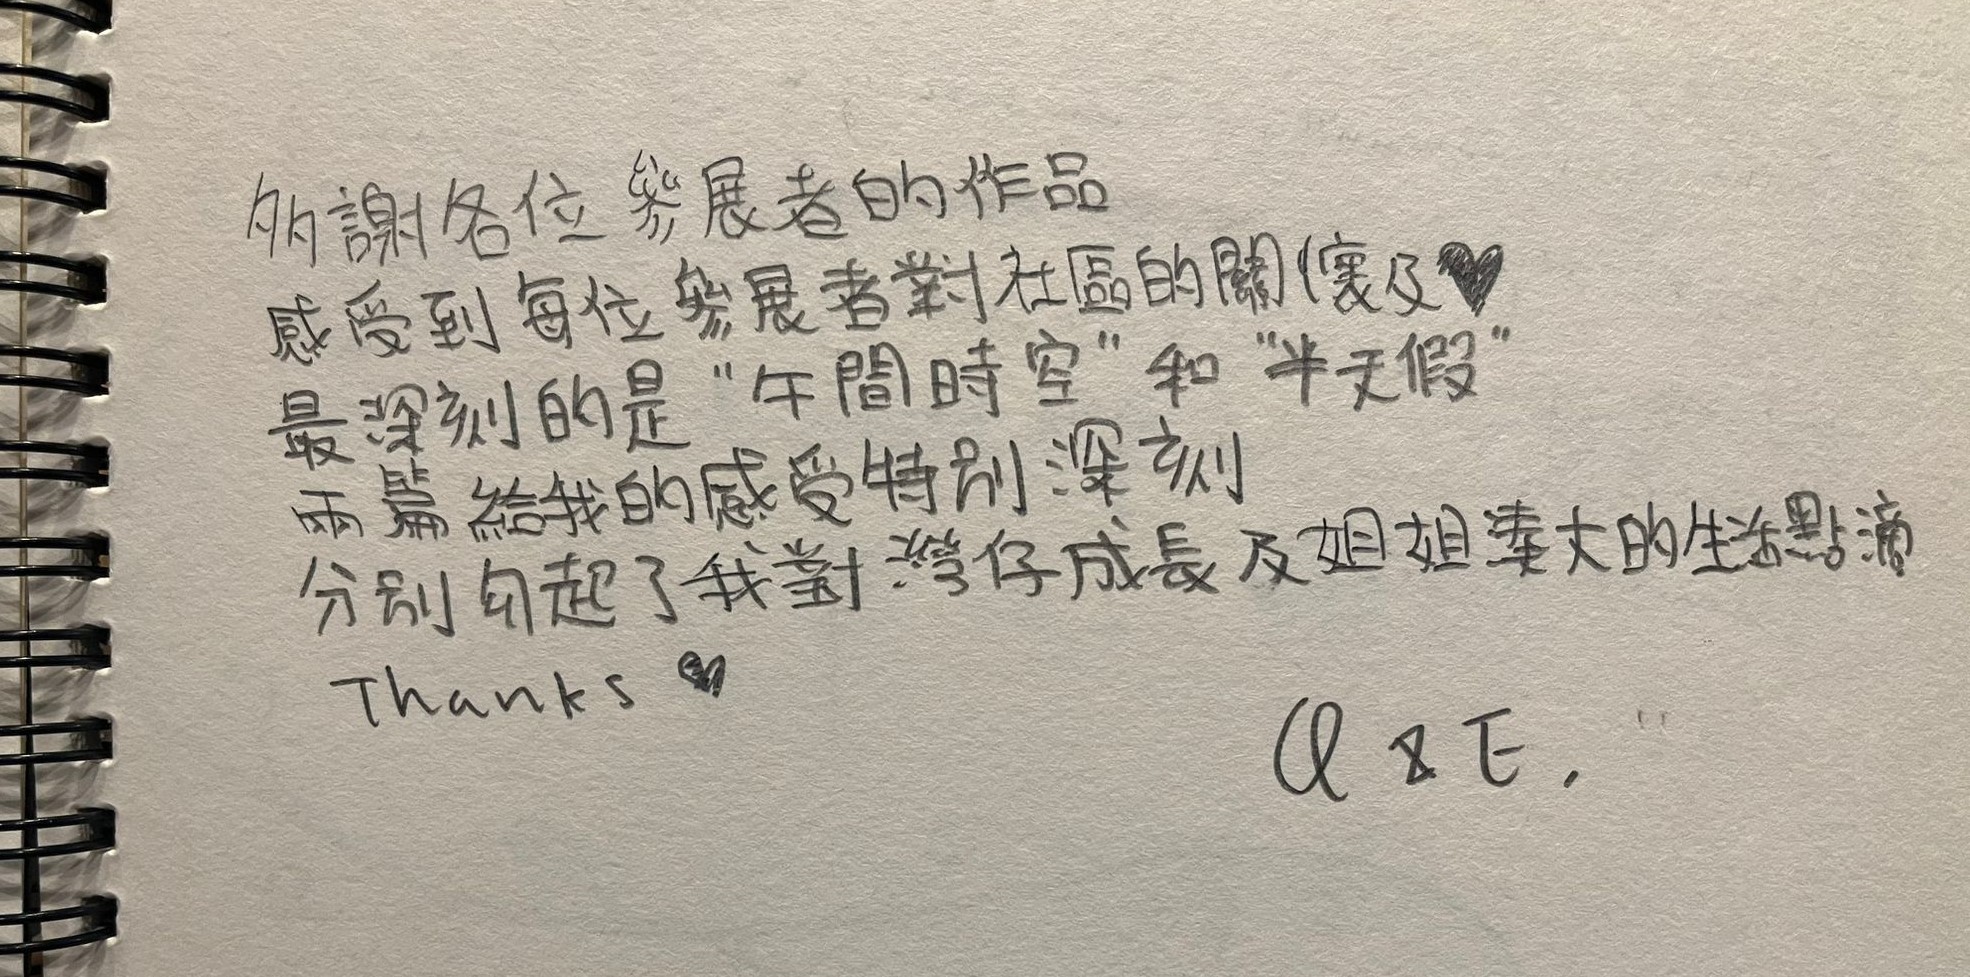 多謝各位參展者的作品
感受到每位參展者對社區的關懷及♥
最深刻的是"午間時空"和"半天假"
兩篇給我的感受特別深刻
分別勾起了我對灣仔成長及姐姐湊大的生活點滴
Thanks ♥
Q & E.